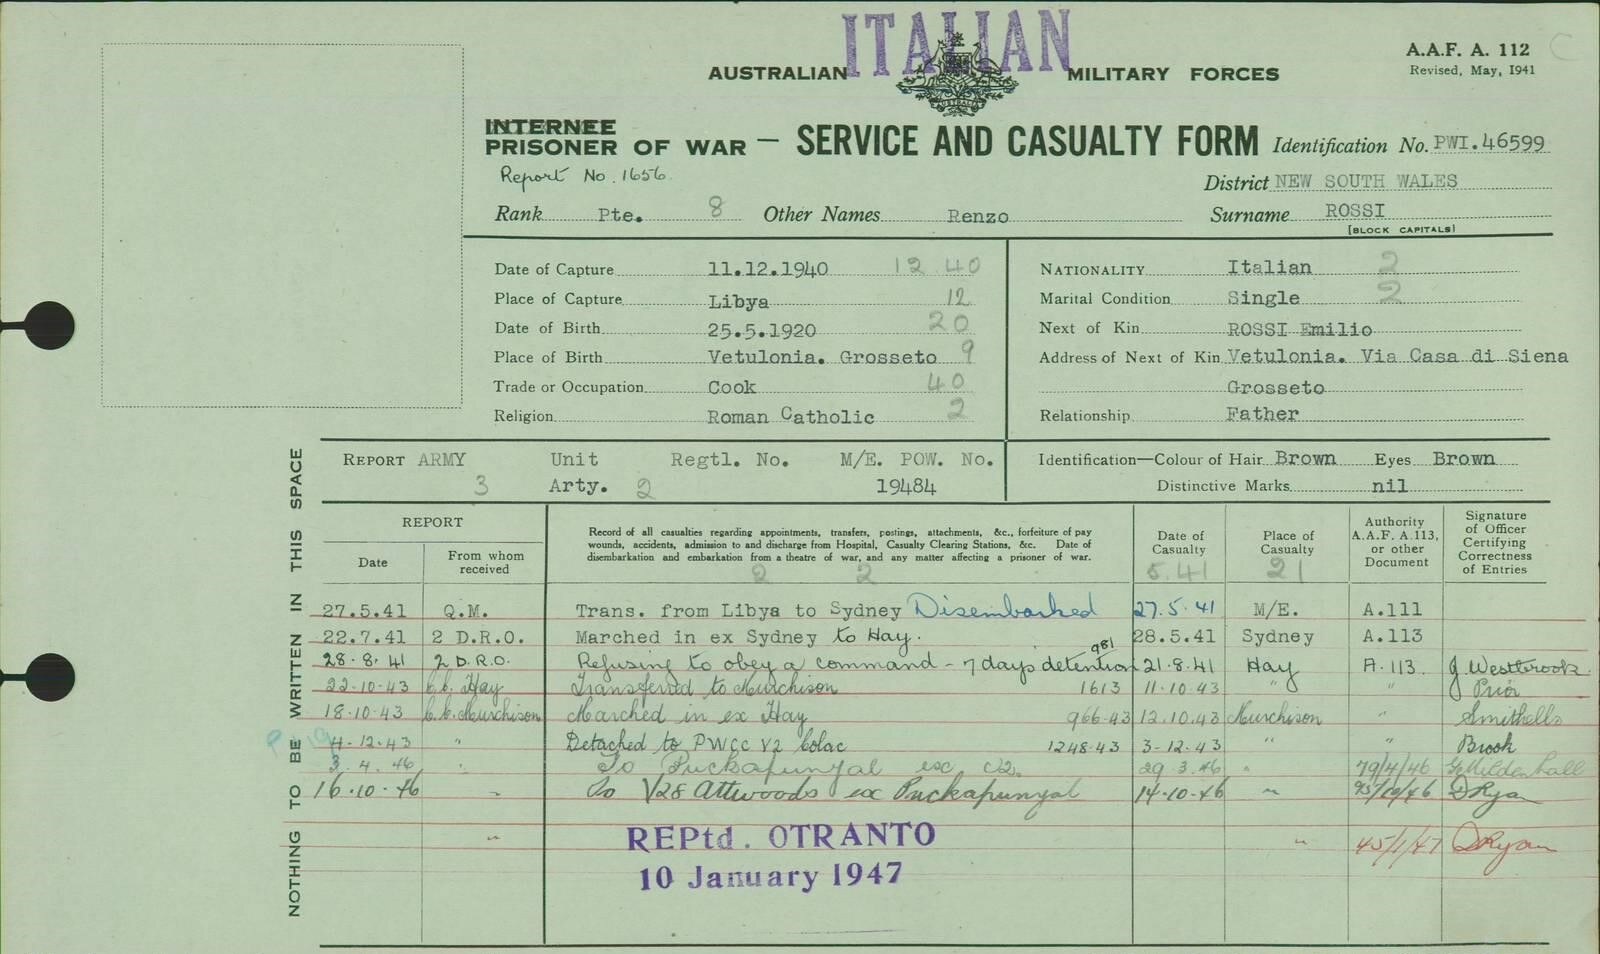 ITALIAN
AUSTRALIAN MILITARY FORCES
AUSTRALIA
A.A.F. A. 112 C
Revised, May, 1941
INTERNEE
PRISONER OF WAR — SERVICE AND CASUALTY FORM Identification No. PWI.46599
Report No. 1656.
District NEW SOUTH WALES
Rank Pte. 8 Other Names Renzo Surname ROSSI
[BLOCK CAPITALS]
Date of Capture 11.12.1940 12.40
Place of Capture Libya 12
Date of Birth 25.5.1920 20
Place of Birth Vetulonia. Grosseto 9
Trade or Occupation Cook 40
Religion Roman Catholic 2
NATIONALITY Italian 2
Marital Condition Single 2
Next of Kin ROSSI Emilio
Address of Next of Kin Vetulonia. Via Casa di Siena
Grosseto
Relationship Father
REPORT ARMY Unit Regtl. No. M/E. POW. No.
3 Arty. 2 19484
Identification—Colour of Hair Brown Eyes Brown
Distinctive Marks nil
NOTHING TO BE WRITTEN IN THIS SPACE
REPORT
Date
From whom received
Record of all casualties regarding appointments, transfers, postings, attachments, &c., forfeiture of pay
wounds, accidents, admission to and discharge from Hospital, Casualty Clearing Stations, &c. Date of
disembarkation and embarkation from a theatre of war, and any matter affecting a prisoner of war.
2 2
Date of Casualty
5.41
Place of Casualty
21
Authority A.A.F. A.113, or other Document
Signature of Officer Certifying Correctness of Entries
27.5.41 Q.M. Trans. from Libya to Sydney Disembarked 27.5.41 M/E. A.111
22.7.41 2 D.R.O. Marched in ex Sydney to Hay. 28.5.41 Sydney A.113
28.8.41 2 D.R.O. Refusing to obey a command - 7 days detention 981 21.8.41 Hay A.113. J. Westbrook.
22.10.43 C.C. Hay Transferred to Murchison 1613 11.10.43 " " Prior
18.10.43 C.C. Murchison Marched in ex Hay 966.43 12.10.43 Murchison " Smithells
4.12.43 " Detached to PWCC V2 Colac 1248.43 3-12.43 " " Brook
3.4.46 " To Puckapunyal exc V2. 29.3.46 " 79/4/46 Mildenhall
16.10.46 " To V28 Attwoods ex Puckapunyal 14.10.46 " 95/10/46 DRyan
" REPtd. OTRANTO " 45/1/47 DRyan
10 January 1947